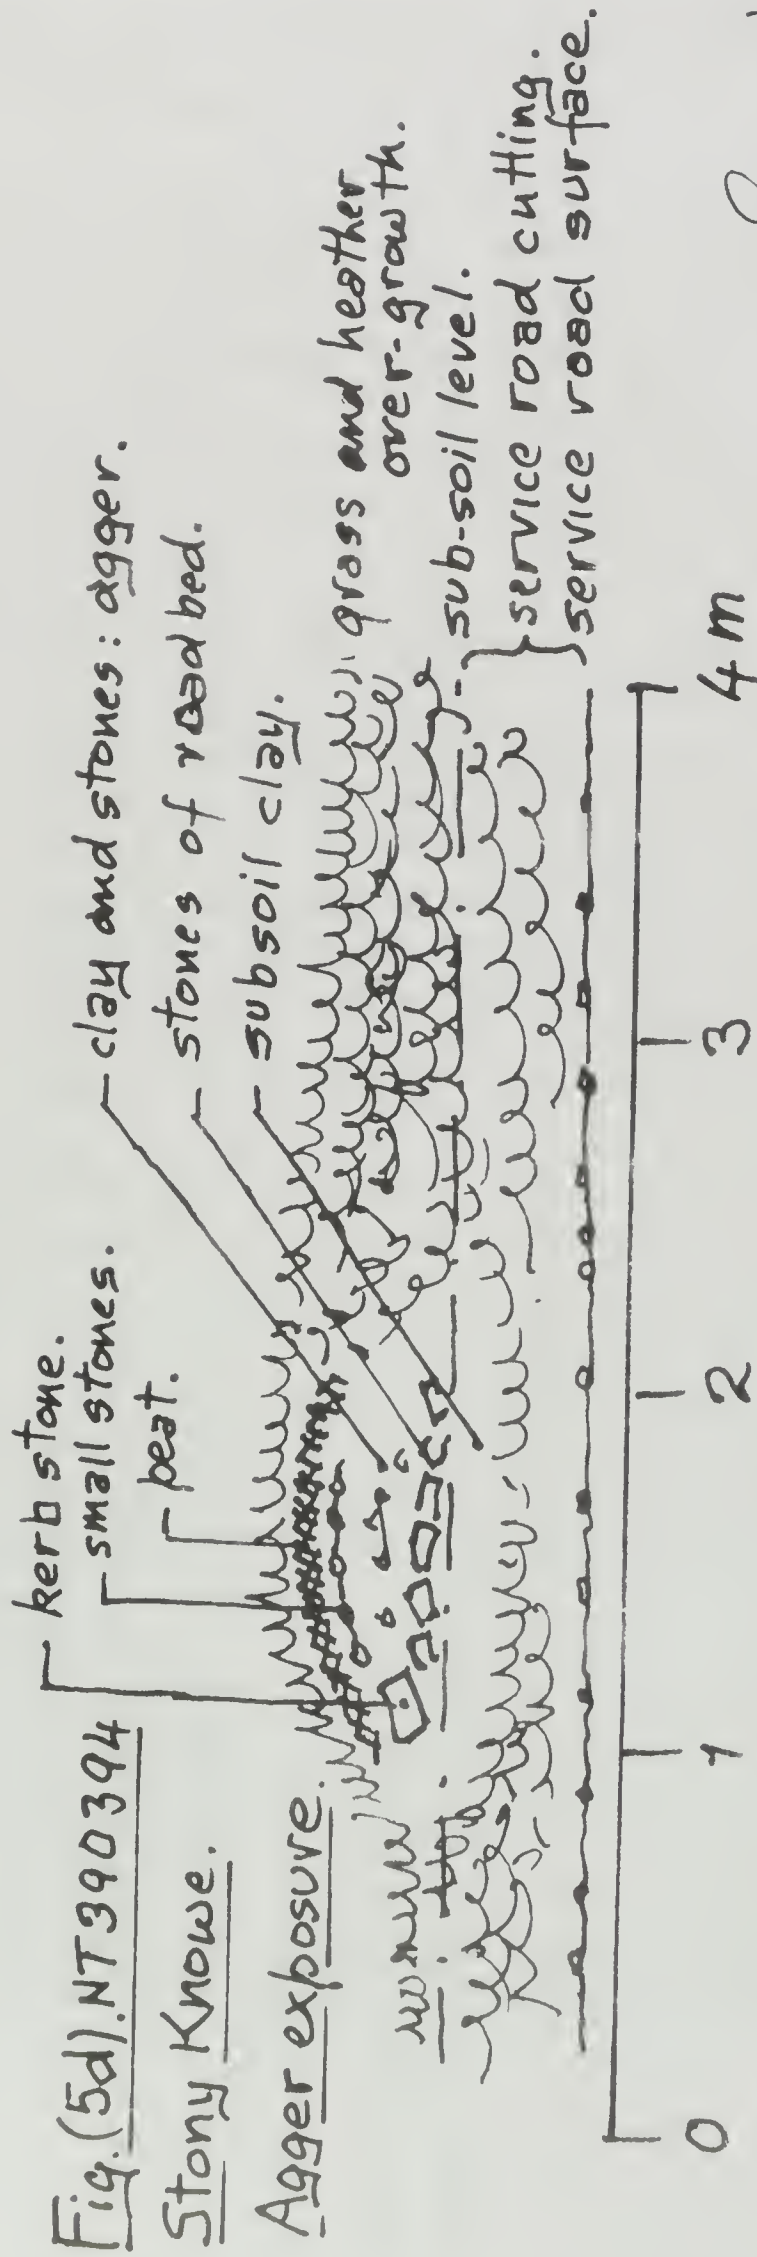 Fig.(5d).NT390394
Stony Knowe.
Agger exposure.
kerb stone.
small stones.
peat.
clay and stones: agger.
stones of road bed.
subsoil clay.
grass and heather
over-growth.
sub-soil level.
service road cutting.
service road surface.
0 1 2 3 4 m